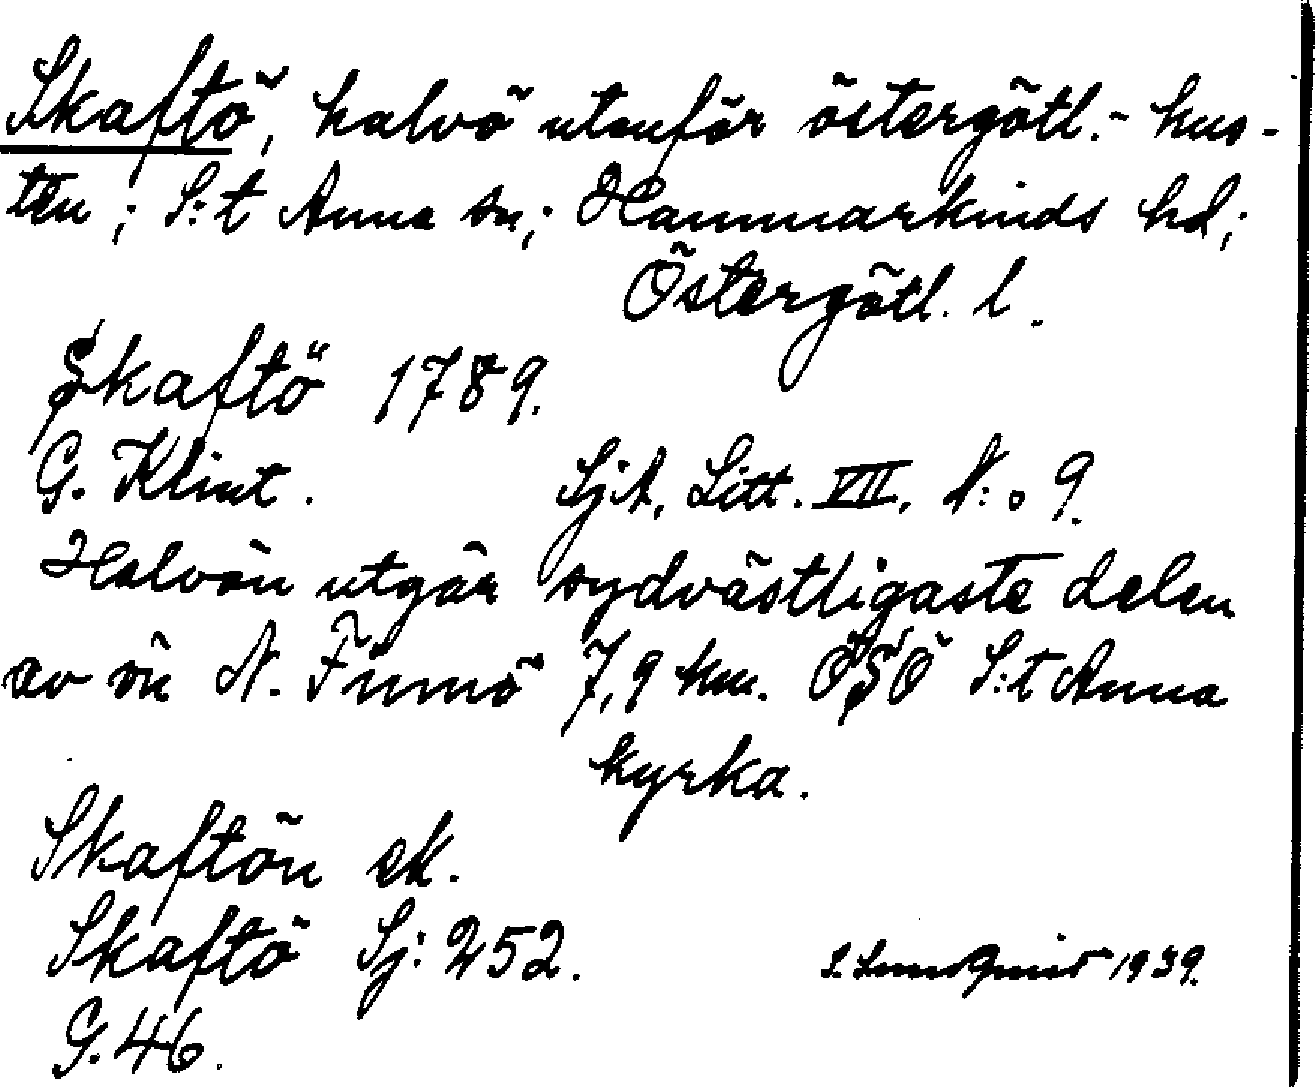 Skaftö, halvö utanför östergötl.- kus-
ten; S:t Anna sn; Hammarkinds hd;
Östergötl. l.
Skaftö 1789.
G. Klint. SjA, Litt. VII. N:o 9.
Halvön utgör sydvästligaste delen
av ön N. Finnö 7,9 km. ÖSÖ S:t Anna
kyrka.
Skaftön ek.
Skaftö Sj: 252. 1939.
G. 46.